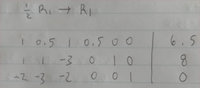 ½ R₁ → R₁
1 0.5 1 0.5 0 0 | 6.5
1 1 -3 0 1 0 | 8
-2 -3 -2 0 0 1 | 0